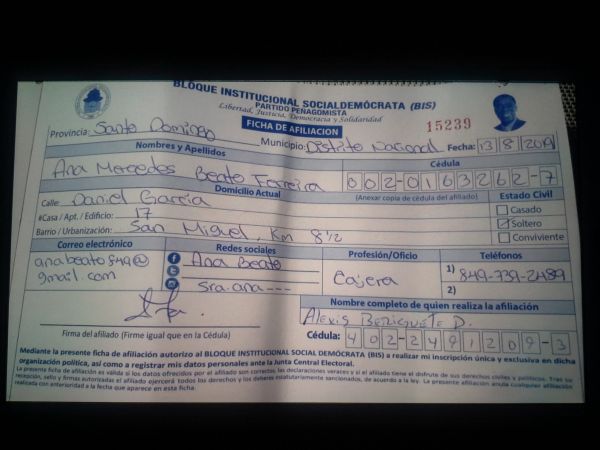 BLOQUE INSTITUCIONAL SOCIALDEMÓCRATA (BIS)
PARTIDO PEÑAGOMISTA
Libertad, Justicia, Democracia y Solidaridad
FICHA DE AFILIACION
15239
Provincia: Santo Domingo Municipio: Distrito Nacional Fecha: 13/8/2019
Nombres y Apellidos Cédula
Ana Mercedes Beato Ferreira 002-0163262-7
Domicilio Actual (Anexar copia de cédula del afiliado) Estado Civil
Calle Daniel García Casado
#Casa / Apt. / Edificio: 17 Soltero
Barrio / Urbanización: San Miguel, Km 8 1/2 Conviviente
Correo electrónico Redes sociales Profesión/Oficio Teléfonos
anabeato849@ Ana Beato Cajera 1) 849-739-2489
gmail.com sra.ana--- 2)
Nombre completo de quien realiza la afiliación
Alexis Beriguete D.
Firma del afiliado (Firme igual que en la Cédula) Cédula: 402-2491209-3
Mediante la presente ficha de afiliación autorizo al BLOQUE INSTITUCIONAL SOCIAL DEMÓCRATA (BIS) a realizar mi inscripción única y exclusiva en dicha
organización política, así como a registrar mis datos personales ante la Junta Central Electoral.
La presente ficha de afiliación es válida si los datos ofrecidos por el afiliado son correctos, las declaraciones veraces y si el afiliado tiene el disfrute de sus derechos civiles y políticos. Tras su
recepción, sello y firmas autorizadas el afiliado ejercerá todos los derechos y los deberes estatutariamente sancionados, de acuerdo a la ley. La presente afiliación anula cualquier afiliación
realizada con anterioridad a la fecha que aparece en esta ficha.